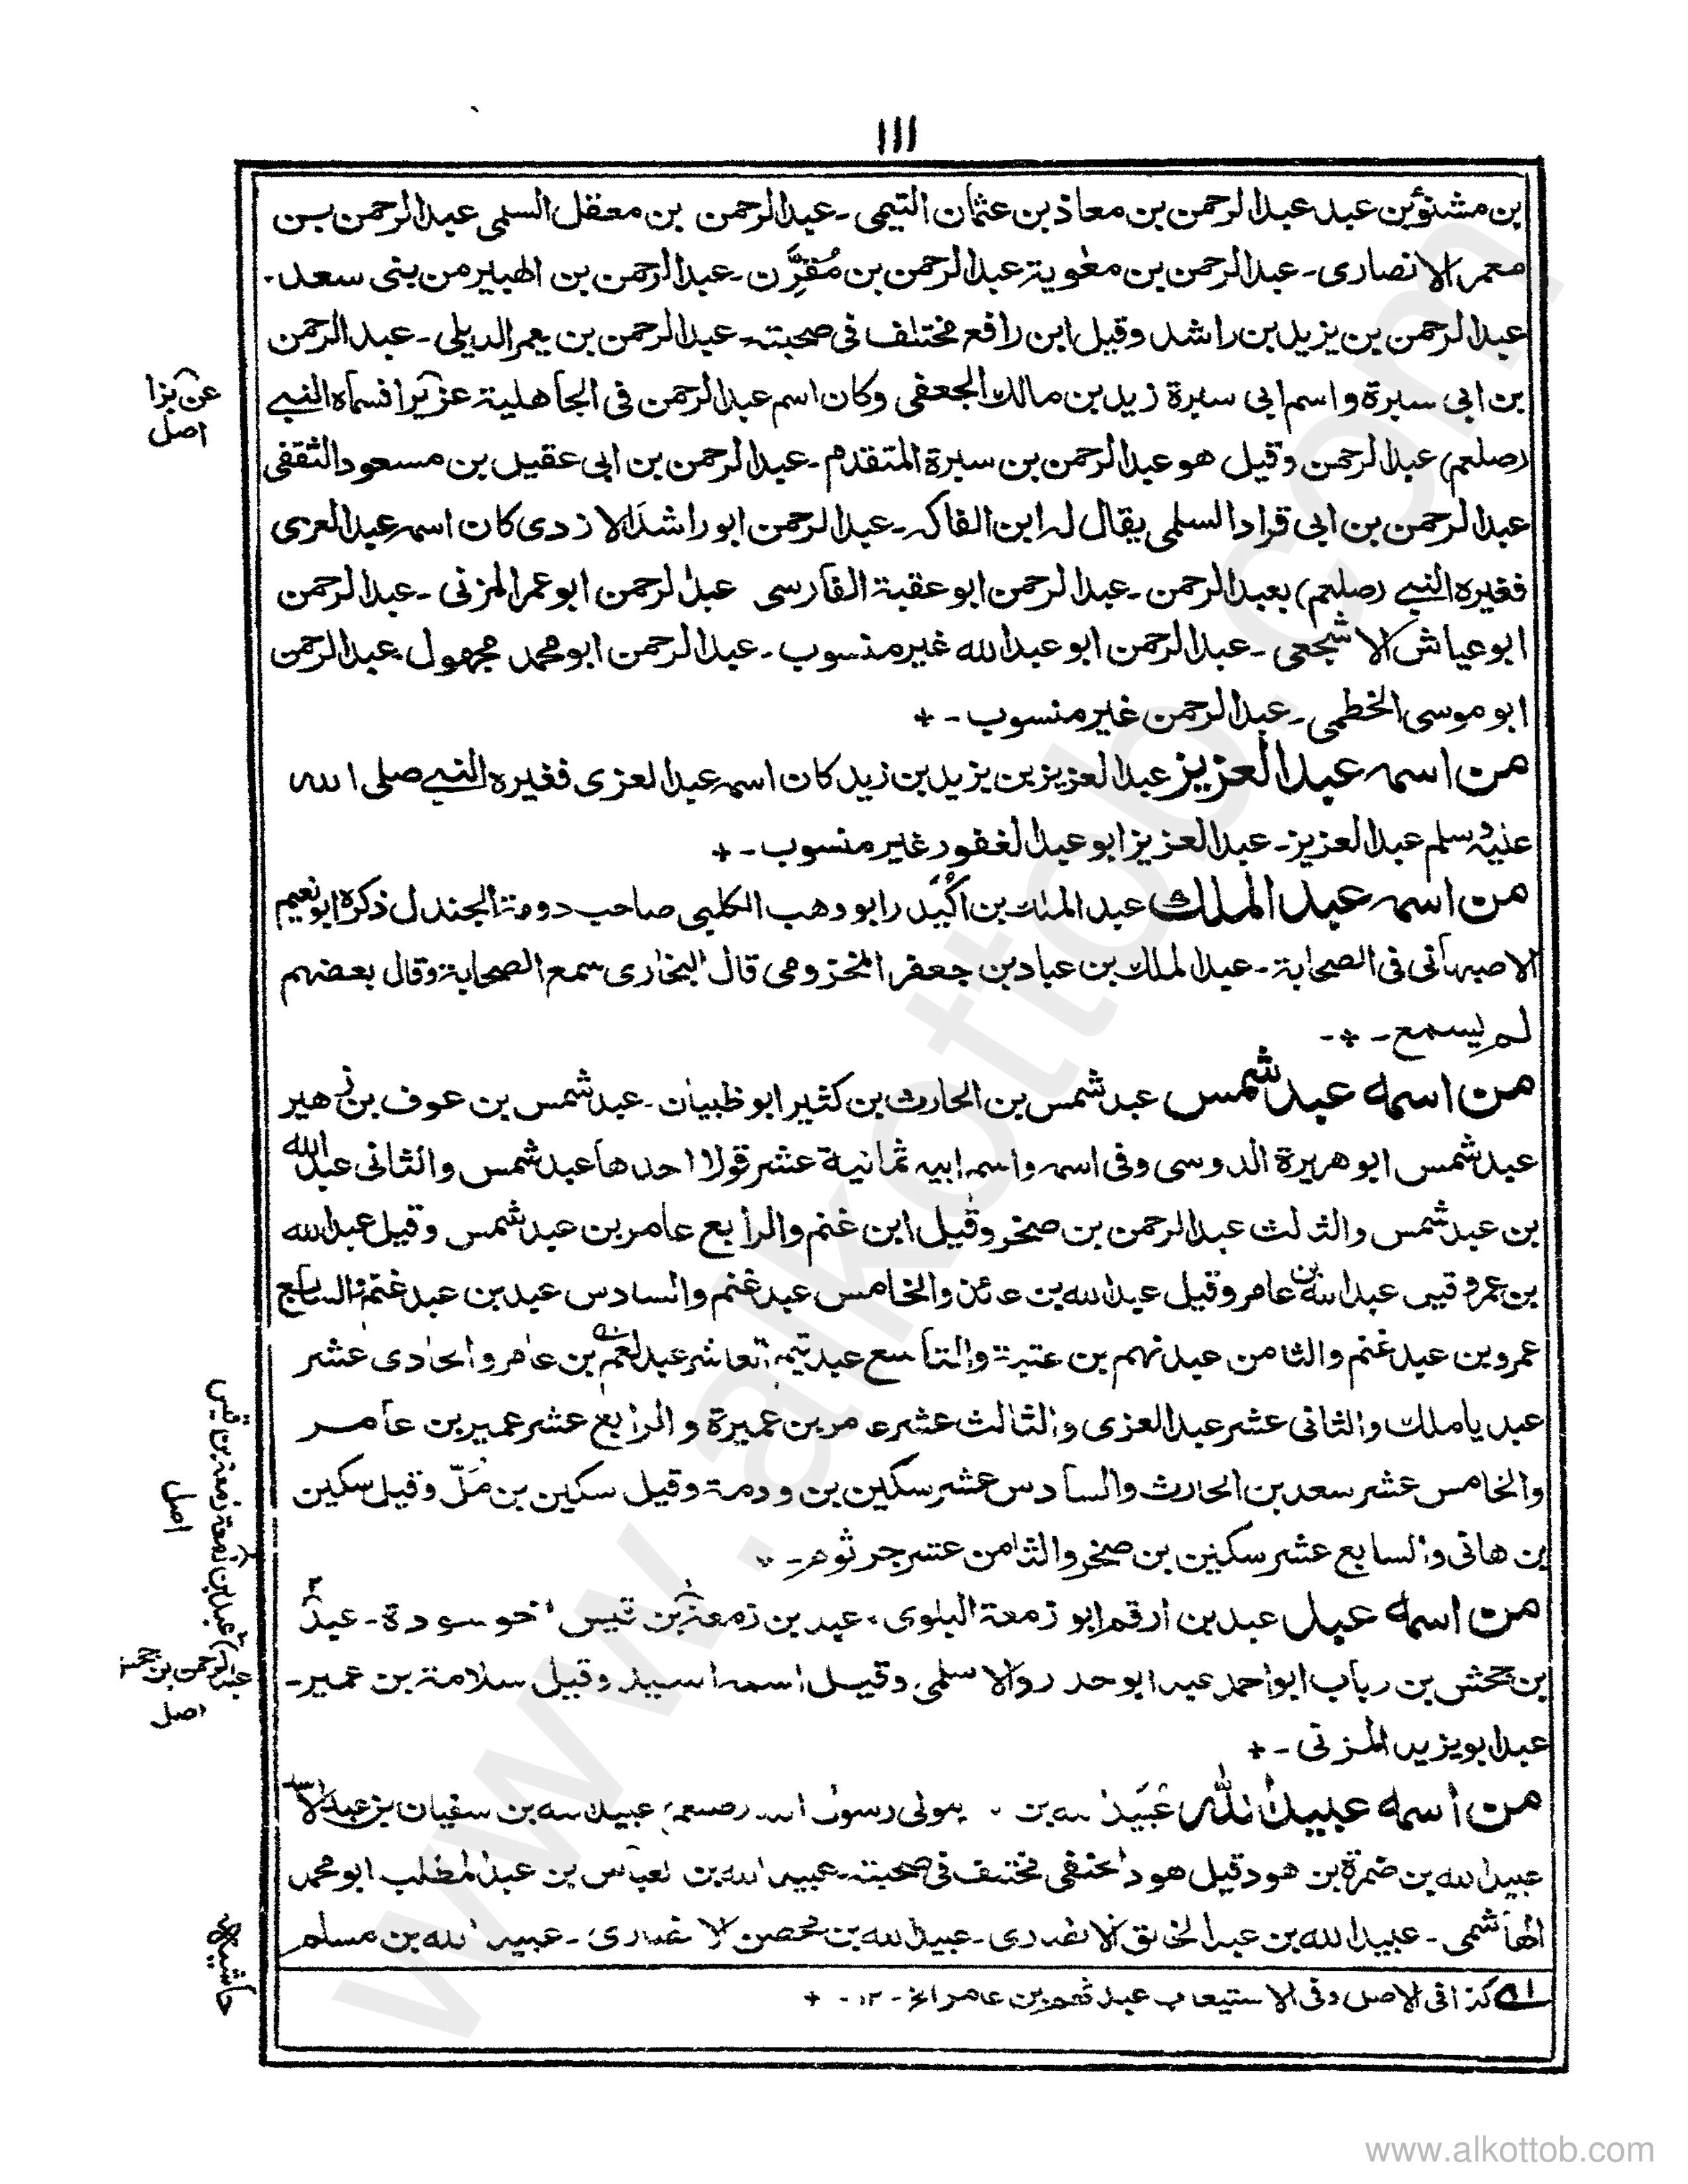 ١١١
بن مشنؤ بن عبد عبدالرحمن بن معاذ بن عثمان التيمى ـ عبدالرحمن بن معقل السلمى عبدالرحمن بن
معمر الانصارى ـ عبدالرحمن بن معٰوية عبدالرحمن بن مُقرِّن ـ عبدالرحمن بن الهبير من بنى سعد ـ
عبدالرحمن بن يزيد بن راشد وقيل ابن رافع مختلف فى صحبته ـ عبدالرحمن بن يعمر الديلى ـ عبدالرحمن
بن ابى سبرة واسم ابى سبرة زيد بن مالك الجعفى وكان اسم عبدالرحمن فى الجاهلية عزيرا فسماه النبى
عن بزا
اصل
(صلعم) عبدالرحمن وقيل هو عبدالرحمن بن سبرة المتقدم ـ عبدالرحمن بن ابى عقيل بن مسعود الثقفى
عبدالرحمن بن ابى قراد السلمى يقال له ابن الفاكه ـ عبدالرحمن ابو راشد الازدى كان اسمه عبدالعزى
فغيره النبى (صلعم) بعبدالرحمن ـ عبدالرحمن ابو عقبة الفارسى عبدالرحمن ابو عمر المزنى ـ عبدالرحمن
ابو عياش الاشجعى ـ عبدالرحمن ابو عبدالله غير منسوب ـ عبدالرحمن ابو محمد مجهول عبدالرحمن
ابو موسى الخطمى ـ عبدالرحمن غير منسوب ـ +
من اسمه عبدالعزيز عبدالعزيز بن يزيد بن زيد كان اسمه عبدالعزى فغيره النبى صلى الله
عليه وسلم عبدالعزيز ـ عبدالعزيز ابو عبدالغفور غير منسوب ـ +
من اسمه عبدالملك عبدالملك بن اُكَيْدر ابو وهب الكلبى صاحب دومة الجندل ذكره ابو نعيم
الاصبهانى فى الصحابة ـ عبدالملك بن عباد بن جعفر المخزومى قال البخارى سمع الصحابة وقال بعضهم
لم يسمع ـ + ـ
من اسمه عبد شمس عبد شمس بن الحارث بن كثير ابو ظبيان ـ عبد شمس بن عوف بن زهير
عبد شمس ابو هريرة الدوسى وفى اسمه واسم ابيه ثمانية عشر قولا احدها عبد شمس والثانى عبدالله
بن عبد شمس والثالث عبدالرحمن بن صخر وقيل ابن غنم والرابع عامر بن عبد شمس وقيل عبدالله
بن عمرو وقيل عبدالله بن عامر وقيل عبدالله بن عائذ والخامس عبد غنم والسادس عبد بن عبد غنم والسابع
عمرو بن عبد غنم والثامن عبد نهم بن عتبة والتاسع عبد تيم العاشر عبد نعم بن عامر والحادى عشر
عبد ياملك والثانى عشر عبدالعزى والثالث عشر عامر بن عميرة والرابع عشر عمير بن عامر
والخامس عشر سعد بن الحارث والسادس عشر سكين بن ودمة وقيل سكين بن مُلّ وقيل سكين
بن هانى والسابع عشر سكين بن صخر والثامن عشر جرثوم ـ
من اسمه عبد عبد بن ارقم ابو زمعة البلوى ـ عبد بن زمعة بن قيس اخو سودة ـ عبد
بن جحش بن رباب ابو احمد عبد ابو حدرد الاسلمى وقيل اسمه اسيد وقيل سلامة بن عمير ـ
عبد ابو يزيد المزنى ـ +
عبد بن زمعة زمعة بن قيس
اصل
عبدالرحمن بن جحش
اصل
من اسمه عبيدالله عُبَيْدالله بن مولى رسول الله (صلعم) عبيدالله بن سفيان بن عبدالاسد
عبيدالله بن ضمرة بن هود قيل هود الحنفى مختلف فى صحبته ـ عبيدالله بن العباس بن عبدالمطلب ابو محمد
الهاشمى ـ عبيدالله بن عبدالخالق الانصارى ـ عبيدالله بن محصن الانصارى ـ عبيدالله بن مسلم
حاشيه
١ه‍ كذا فى الاصل وفى الاستيعاب عبد نهم بن عامر الخ ـ ١٢ ـ +
www.alkottob.com
www.alkottob.com